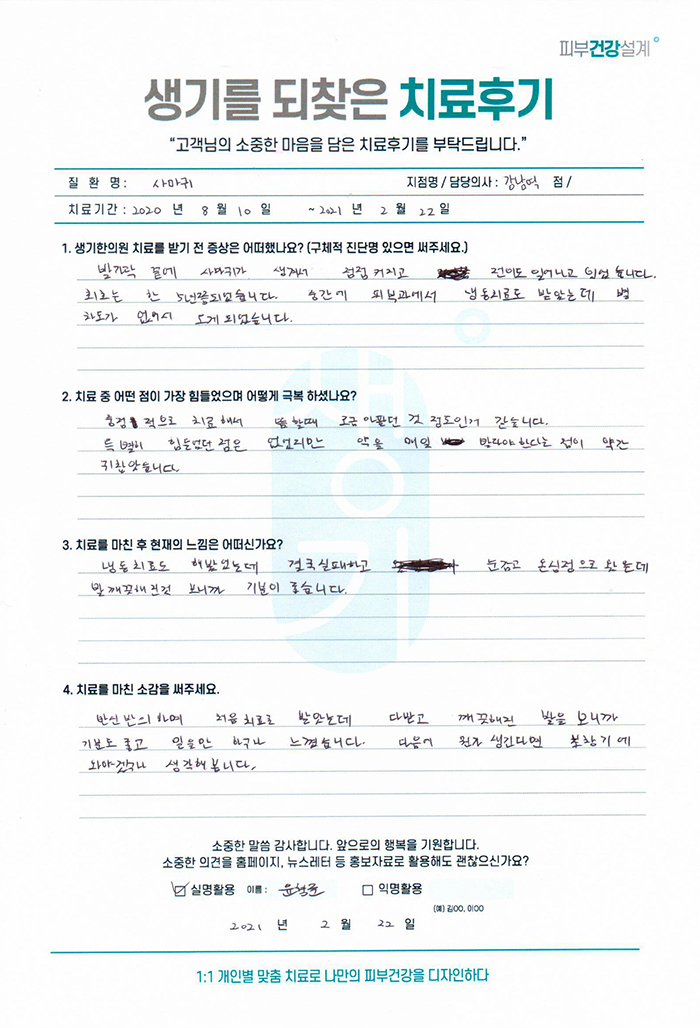 피부건강설계
생기를 되찾은 치료후기
“고객님의 소중한 마음을 담은 치료후기를 부탁드립니다.”
질 환 명 : 사마귀 지점명 / 담당의사 : 강남역 점 /
치료기간 : 2020 년 8 월 10 일 ~ 2021 년 2 월 22 일
1. 생기한의원 치료를 받기 전 증상은 어떠했나요? (구체적 진단명 있으면 써주세요.)
발가락 끝에 사마귀가 생겨서 점점 커지고 전이도 일어나고 있었습니다.
최초는 한 5년쯤되었습니다. 중간에 피부과에서 냉동치료도 받았는데 별
차도가 없어서 오게 되었습니다.
2. 치료 중 어떤 점이 가장 힘들었으며 어떻게 극복 하셨나요?
적으로 치료해서 뜸할때 조금 아팠던 것 정도인거 같습니다.
특별히 힘들었던 점은 없었지만 약을 매일 발라야한다는 점이 약간
귀찮았습니다.
3. 치료를 마친 후 현재의 느낌은 어떠신가요?
냉동치료도 해봤었는데 결국실패하고 눈감고 온심정으로 왔는데
발 깨끗해진걸 보니까 기분이 좋습니다.
4. 치료를 마친 소감을 써주세요.
반신반의 하며 처음 치료로 받았는데 다받고 깨끗해진 발을 보니까
기분도 좋고 믿을만 하구나 느꼈습니다. 다음에 혼자 생긴다면 분창기에
와야겠구나 생각해봅니다.
소중한 말씀 감사합니다. 앞으로의 행복을 기원합니다.
소중한 의견을 홈페이지, 뉴스레터 등 홍보자료로 활용해도 괜찮으신가요?
실명활용 이름 : 익명활용
(예) 김OO, 이OO
2021 년 2 월 22 일
1:1 개인별 맞춤 치료로 나만의 피부건강을 디자인하다
생기